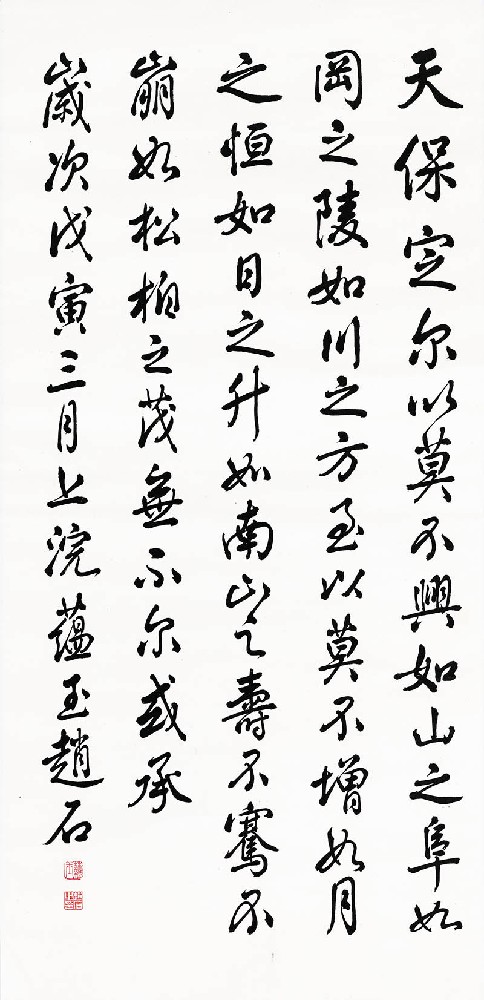 天保定尔以莫不興如山之阜如
岡之陵如川之方至以莫不增如月
之恒如日之升如南山之壽不騫不
崩如松柏之茂無不尔或承
歲次戊寅三月上浣蘊玉趙石